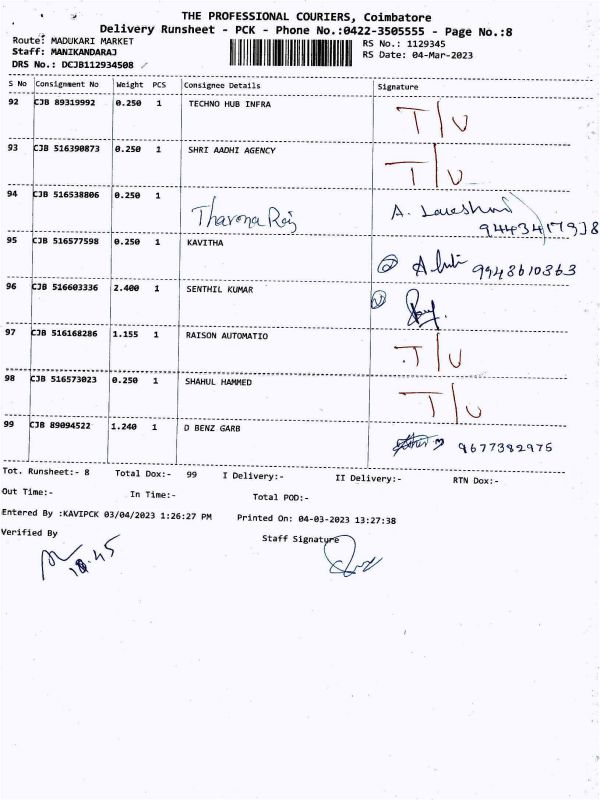 THE PROFESSIONAL COURIERS, Coimbatore
Delivery Runsheet - PCK - Phone No.:0422-3505555 - Page No.:8
Route: MADUKARI MARKET
RS No.: 1129345
Staff: MANIKANDARAJ
RS Date: 04-Mar-2023
DRS No.: DCJB112934508
S No Consignment No Weight PCS Consignee Details Signature
92 CJB 89319992 0.250 1 TECHNO HUB INFRA T/U
93 CJB 516390873 0.250 1 SHRI AADHI AGENCY T/U
94 CJB 516538806 0.250 1 Tharona Raj A.
9443417938
95 CJB 516577598 0.250 1 KAVITHA 9943610363
96 CJB 516603336 2.400 1 SENTHIL KUMAR
97 CJB 516168286 1.155 1 RAISON AUTOMATIO T/U
98 CJB 516573023 0.250 1 SHAHUL HAMMED T/U
99 CJB 89094522 1.240 1 D BENZ GARB 9677392975
Tot. Runsheet:- 8 Total Dox:- 99 I Delivery:- II Delivery:- RTN Dox:-
Out Time:- In Time:- Total POD:-
Entered By :KAVIPCK 03/04/2023 1:26:27 PM Printed On: 04-03-2023 13:27:38
Verified By Staff Signature